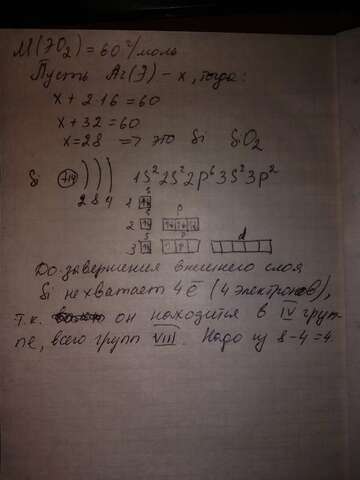 M(ЭO₂) = 60 г/моль
Пусть Ar(Э) – x, тогда:
x + 2·16 = 60
x + 32 = 60
x = 28 => это Si SiO₂
Si +14 ) ) ) 1S² 2S² 2p⁶ 3S² 3p²
2 8 4
s
1 ↑↓
s p
2 ↑↓ ↑↓ ↑↓ ↑↓
s p d
3 ↑↓ ↑ ↑
До завершения внешнего слоя
Si не хватает 4 ē (4 электронов),
т.к. он находится в IV груп-
пе, всего групп VIII. Надо из 8-4=4.